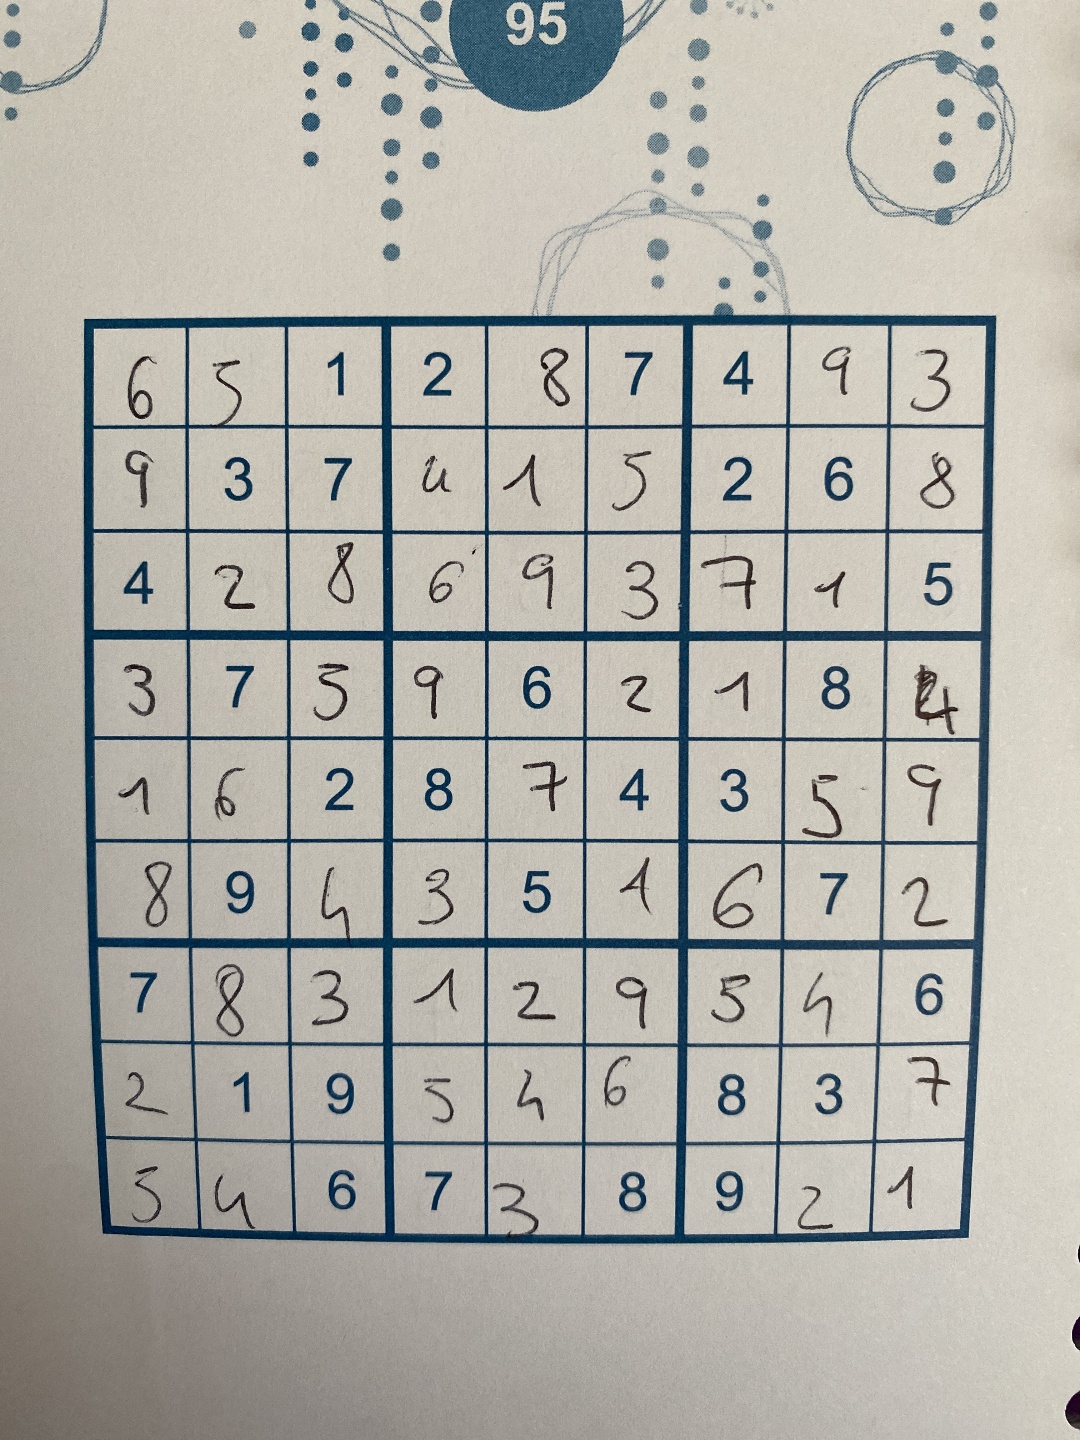 95
6 5 1 2 8 7 4 9 3
9 3 7 4 1 5 2 6 8
4 2 8 6 9 3 7 1 5
3 7 5 9 6 2 1 8 4
1 6 2 8 7 4 3 5 9
8 9 4 3 5 1 6 7 2
7 8 3 1 2 9 5 4 6
2 1 9 5 4 6 8 3 7
5 4 6 7 3 8 9 2 1